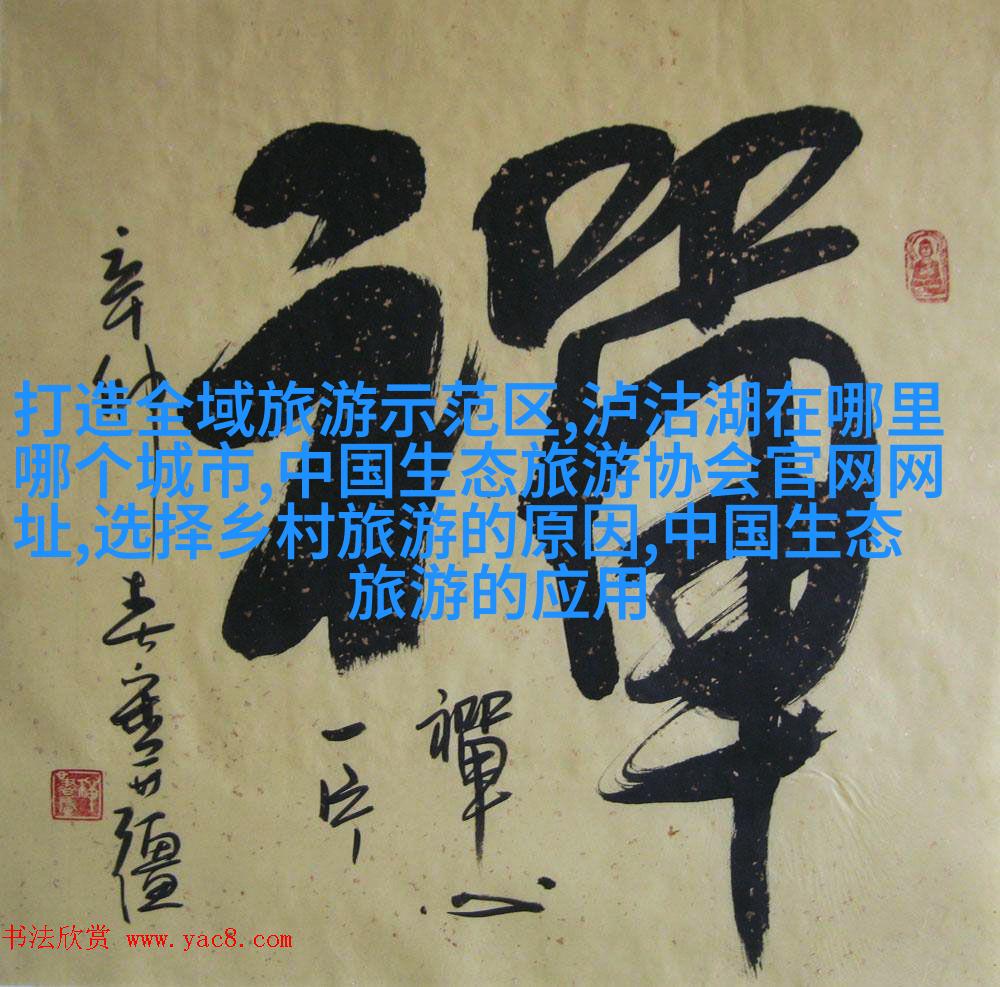 禪
打造全域旅游示范区,泸沽湖在哪里
哪个城市,中国生态旅游协会官网网
址,选择乡村旅游的原因,中国生态
旅游的应用
禪心
一片
书法欣赏 www.yac8.com